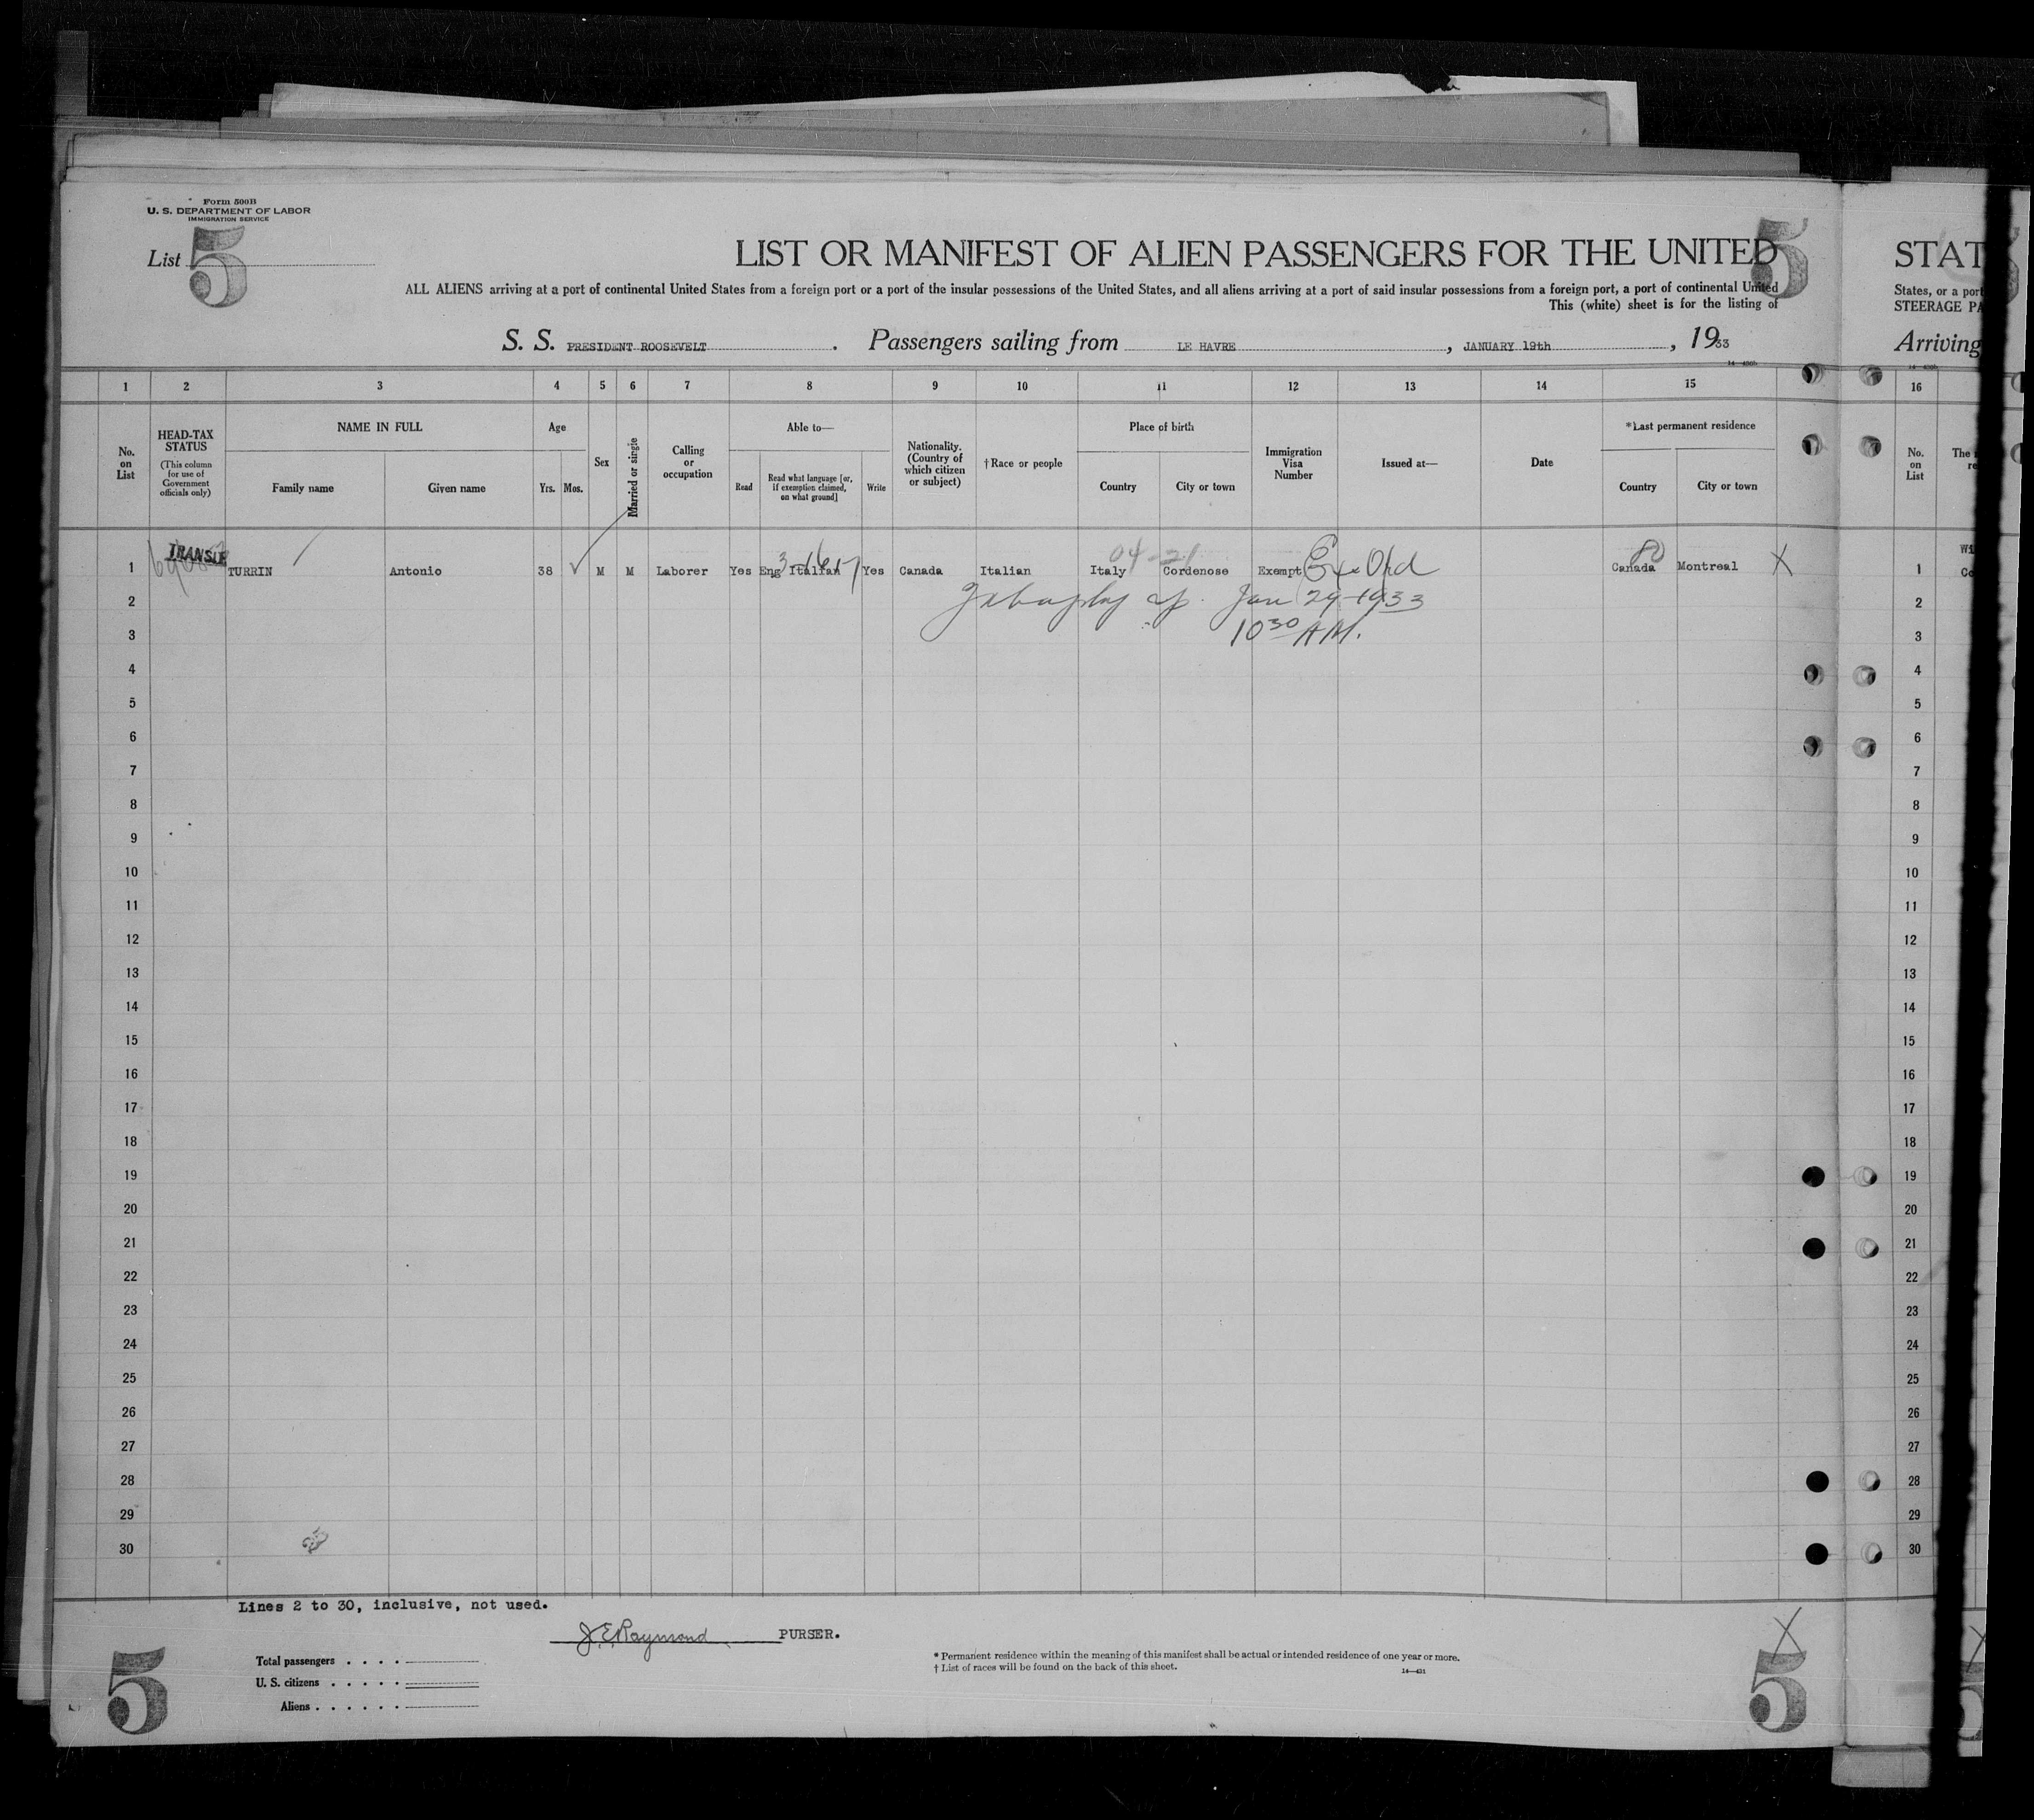 Form 500B
U. S. DEPARTMENT OF LABOR
IMMIGRATION SERVICE
List 5
5
LIST OR MANIFEST OF ALIEN PASSENGERS FOR THE UNITED
STAT
ALL ALIENS arriving at a port of continental United States from a foreign port or a port of the insular possessions of the United States, and all aliens arriving at a port of said insular possessions from a foreign port, a port of continental United
States, or a port
This (white) sheet is for the listing of
STEERAGE PA
S. S. PRESIDENT ROOSEVELT . Passengers sailing from LE HAVRE , JANUARY 19th , 1933
Arriving
1 2 3 4 5 6 7 8 9 10 11 12 13 14 15 16
No. on List
HEAD-TAX STATUS
(This column for use of Government officials only)
NAME IN FULL
Family name
Given name
Age
Yrs. Mos.
Sex
Married or single
Calling or occupation
Able to—
Read
Read what language [or, if exemption claimed, on what ground]
Write
Nationality. (Country of which citizen or subject)
†Race or people
Place of birth
Country
City or town
Immigration Visa Number
Issued at—
Date
*Last permanent residence
Country
City or town
No. on List
The
re
1 TURRIN Antonio 38 M M Laborer Yes Eng Italian Yes Canada Italian Italy Cordenose Exempt Canada Montreal X 1
Jan 29-1933
2 2
10³⁰ A.M.
3 3
4 4
5 5
6 6
7 7
8 8
9 9
10 10
11 11
12 12
13 13
14 14
15 15
16 16
17 17
18 18
19 19
20 20
21 21
22 22
23 23
24 24
25 25
26 26
27 27
28 28
29 29
30 30
Lines 2 to 30, inclusive, not used.
J.E.Raymond PURSER.
Total passengers . . . .
U. S. citizens . . . . .
Aliens . . . . . .
* Permanent residence within the meaning of this manifest shall be actual or intended residence of one year or more.
† List of races will be found on the back of this sheet.
14—431
5
X
5